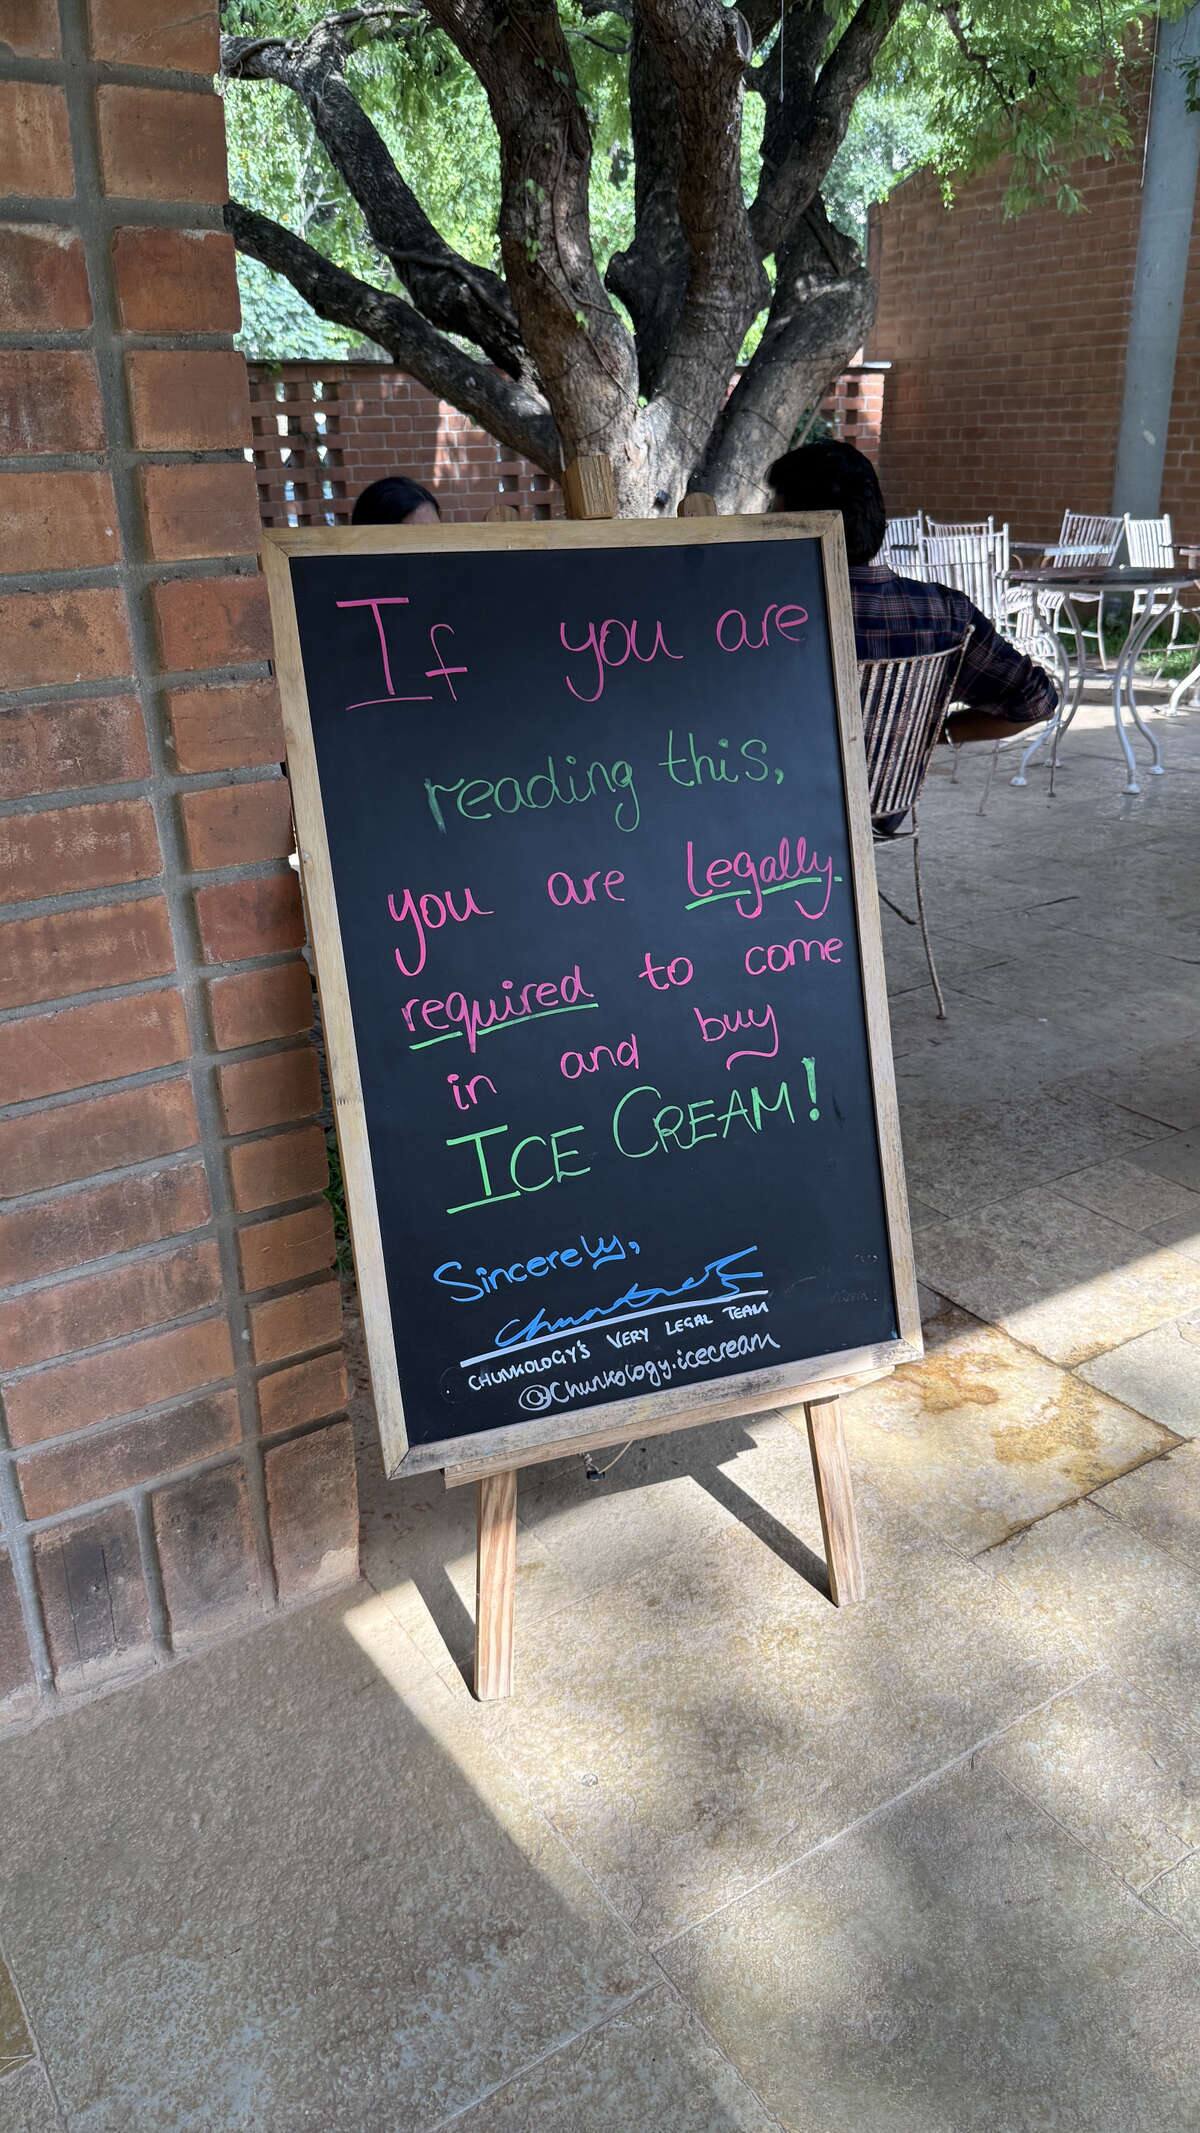 If you are
reading this,
you are legally
required to come
in and buy
ICE CREAM!
Sincerely,
CHUNKOLOGY'S VERY LEGAL TEAM
@Chunkology.icecream